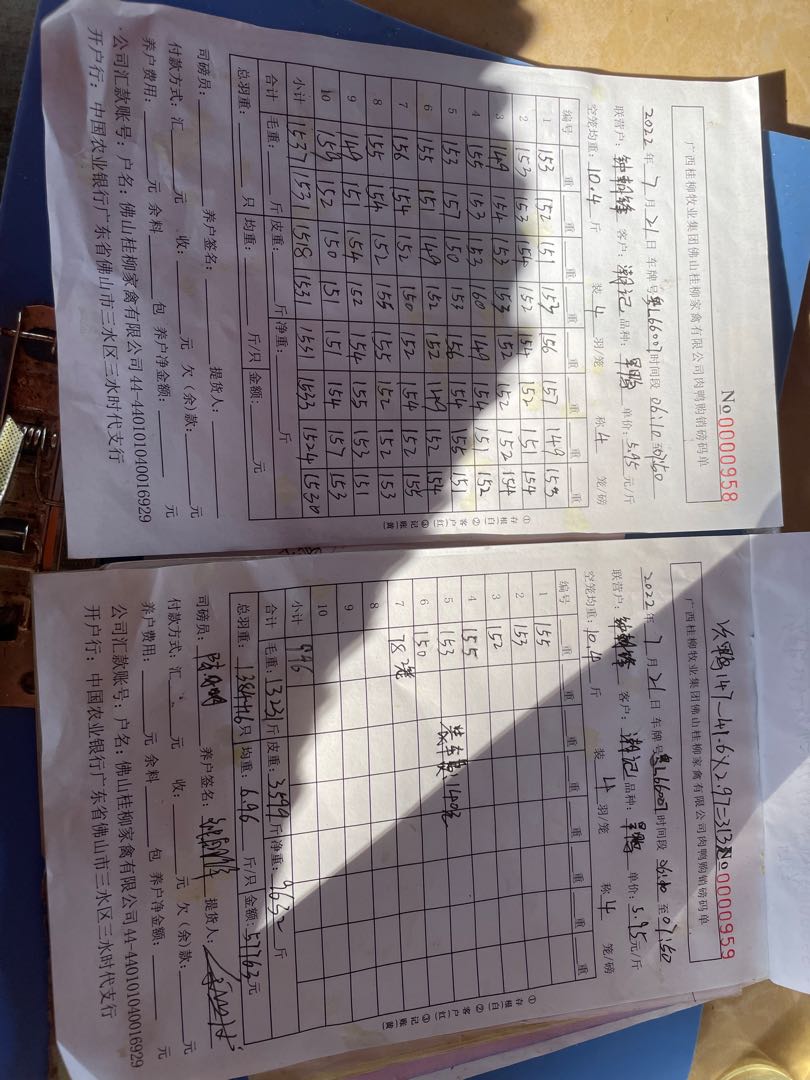 No 0000958
广西桂柳牧业集团佛山桂柳家禽有限公司肉鸭购销磅码单
2022年7月21日 车牌号粤L66007 时间段 06:10 至 07:50
联营户: 钟朝锋 客户: 潮记 品种: 旱鸭 单价: 5.95 元/斤
空笼均重: 10.4 斤 装 4 羽/笼 称 4 笼/磅
编号 重 重 重 重 重 重 重 重
1 153 152 151 153 156 157 149 153
2 153 153 154 152 154 152 151 154
3 149 154 153 153 152 152 152 154
4 155 153 153 160 149 154 151 152
5 153 157 150 153 156 154 155 151
6 155 151 149 152 152 149 152 154
7 156 154 152 150 152 154 152 155
8 155 154 152 155 155 152 152 153
9 149 151 154 152 154 155 153 151
10 159 152 150 151 151 154 157 153
小计 1537 1531 1518 1531 1531 1533 1524 1530
合计 毛重: 斤 皮重: 斤 净重: 斤
总羽重: 只 均重: 斤/只 金额: 元
司磅员: 养户签名: 提货人:
付款方式: 汇 元 收: 元 欠(余)款: 元
养户费用: 元 余料 包 养户净金额: 元
公司汇款账号: 户名: 佛山桂柳家禽有限公司 44-440101040016929
开户行: 中国农业银行广东省佛山市三水区三水时代支行
①存根(白) ②客户(红) ③记账(黄)
次鸭147-41.6×2.97=313元
No 0000959
广西桂柳牧业集团佛山桂柳家禽有限公司肉鸭购销磅码单
2022年7月21日 车牌号粤L66007 时间段 06:10 至 07:50
联营户: 钟朝锋 客户: 潮记 品种: 旱鸭 单价: 5.95 元/斤
空笼均重: 10.4 斤 装 4 羽/笼 称 4 笼/磅
编号 重 重 重 重 重 重 重 重
1 155
2 153
3 152
4 155
5 153 装车费: 140元
6 150
7 78 2笼
8
9
10
小计 996
合计 毛重: 13231 斤 皮重: 3599 斤 净重: 9632 斤
总羽重: 只 均重: 6.96 斤/只 金额: 57763 元
司磅员: 养户签名: 钟朝锋 提货人:
付款方式: 汇 元 收: 元 欠(余)款: 元
养户费用: 元 余料 包 养户净金额: 元
公司汇款账号: 户名: 佛山桂柳家禽有限公司 44-440101040016929
开户行: 中国农业银行广东省佛山市三水区三水时代支行
①存根(白) ②客户(红) ③记账(黄)